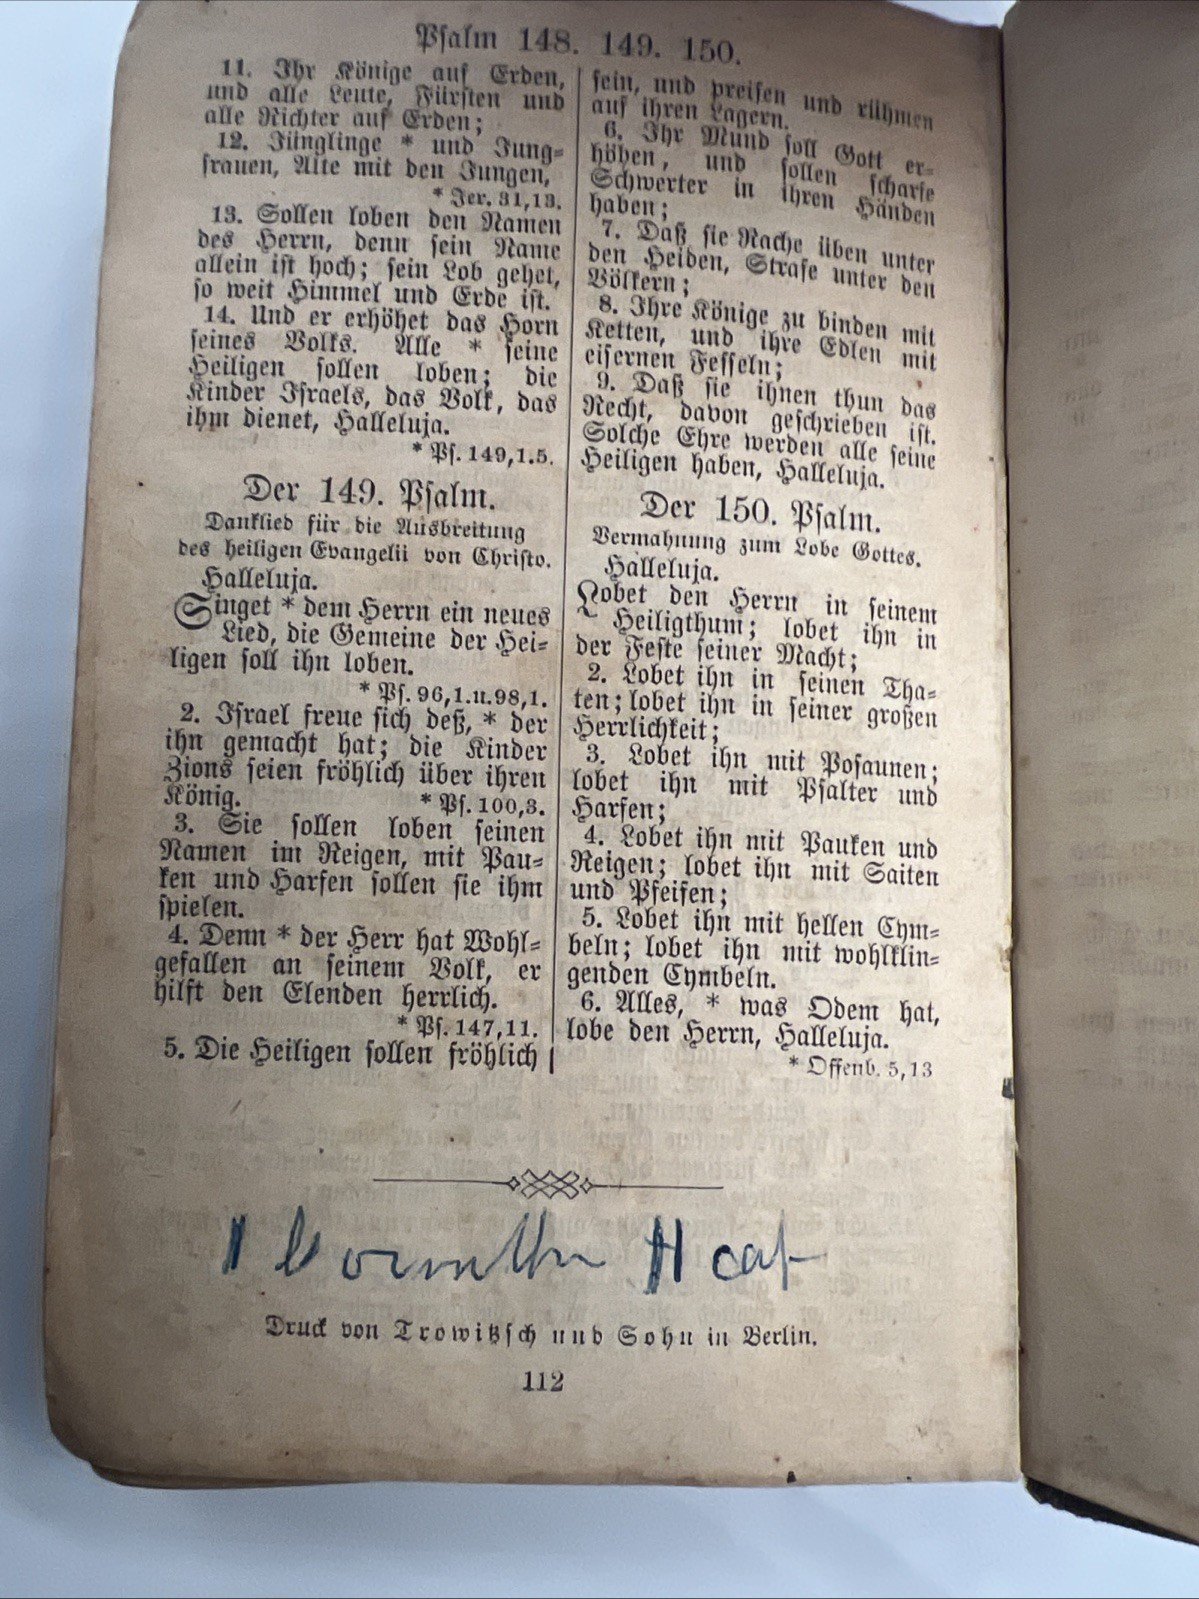 Psalm 148. 149. 150.
11. Ihr Könige auf Erden,
und alle Leute, Fürsten und
alle Richter auf Erden;
12. Jünglinge * und Jung-
frauen, Alte mit den Jungen,
* Jer. 31,13.
13. Sollen loben den Namen
des Herrn, denn sein Name
allein ist hoch; sein Lob gehet,
so weit Himmel und Erde ist.
14. Und er erhöhet das Horn
seines Volks. Alle * seine
Heiligen sollen loben; die
Kinder Israels, das Volk, das
ihm dienet, Halleluja.
* Ps. 149,1.5.
Der 149. Psalm.
Danklied für die Ausbreitung
des heiligen Evangelii von Christo.
Halleluja.
Singet * dem Herrn ein neues
Lied, die Gemeine der Hei-
ligen soll ihn loben.
* Ps. 96,1.u.98,1.
2. Israel freue sich deß, * der
ihn gemacht hat; die Kinder
Zions seien fröhlich über ihren
König. * Ps. 100,3.
3. Sie sollen loben seinen
Namen im Reigen, mit Pau-
ken und Harfen sollen sie ihm
spielen.
4. Denn * der Herr hat Wohl-
gefallen an seinem Volk, er
hilft den Elenden herrlich.
* Ps. 147,11.
5. Die Heiligen sollen fröhlich
sein, und preisen und rühmen
auf ihren Lagern.
6. Ihr Mund soll Gott er-
höhen, und sollen scharfe
Schwerter in ihren Händen
haben;
7. Daß sie Rache üben unter
den Heiden, Strafe unter den
Völkern;
8. Ihre Könige zu binden mit
Ketten, und ihre Edlen mit
eisernen Fesseln;
9. Daß sie ihnen thun das
Recht, davon geschrieben ist.
Solche Ehre werden alle seine
Heiligen haben, Halleluja.
Der 150. Psalm.
Vermahnung zum Lobe Gottes.
Halleluja.
Lobet den Herrn in seinem
Heiligthum; lobet ihn in
der Feste seiner Macht;
2. Lobet ihn in seinen Tha-
ten; lobet ihn in seiner großen
Herrlichkeit;
3. Lobet ihn mit Posaunen;
lobet ihn mit Psalter und
Harfen;
4. Lobet ihn mit Pauken und
Reigen; lobet ihn mit Saiten
und Pfeifen;
5. Lobet ihn mit hellen Cym-
beln; lobet ihn mit wohlklin-
genden Cymbeln.
6. Alles, * was Odem hat,
lobe den Herrn, Halleluja.
* Offenb. 5,13
Druck von Trowitzsch und Sohn in Berlin.
112